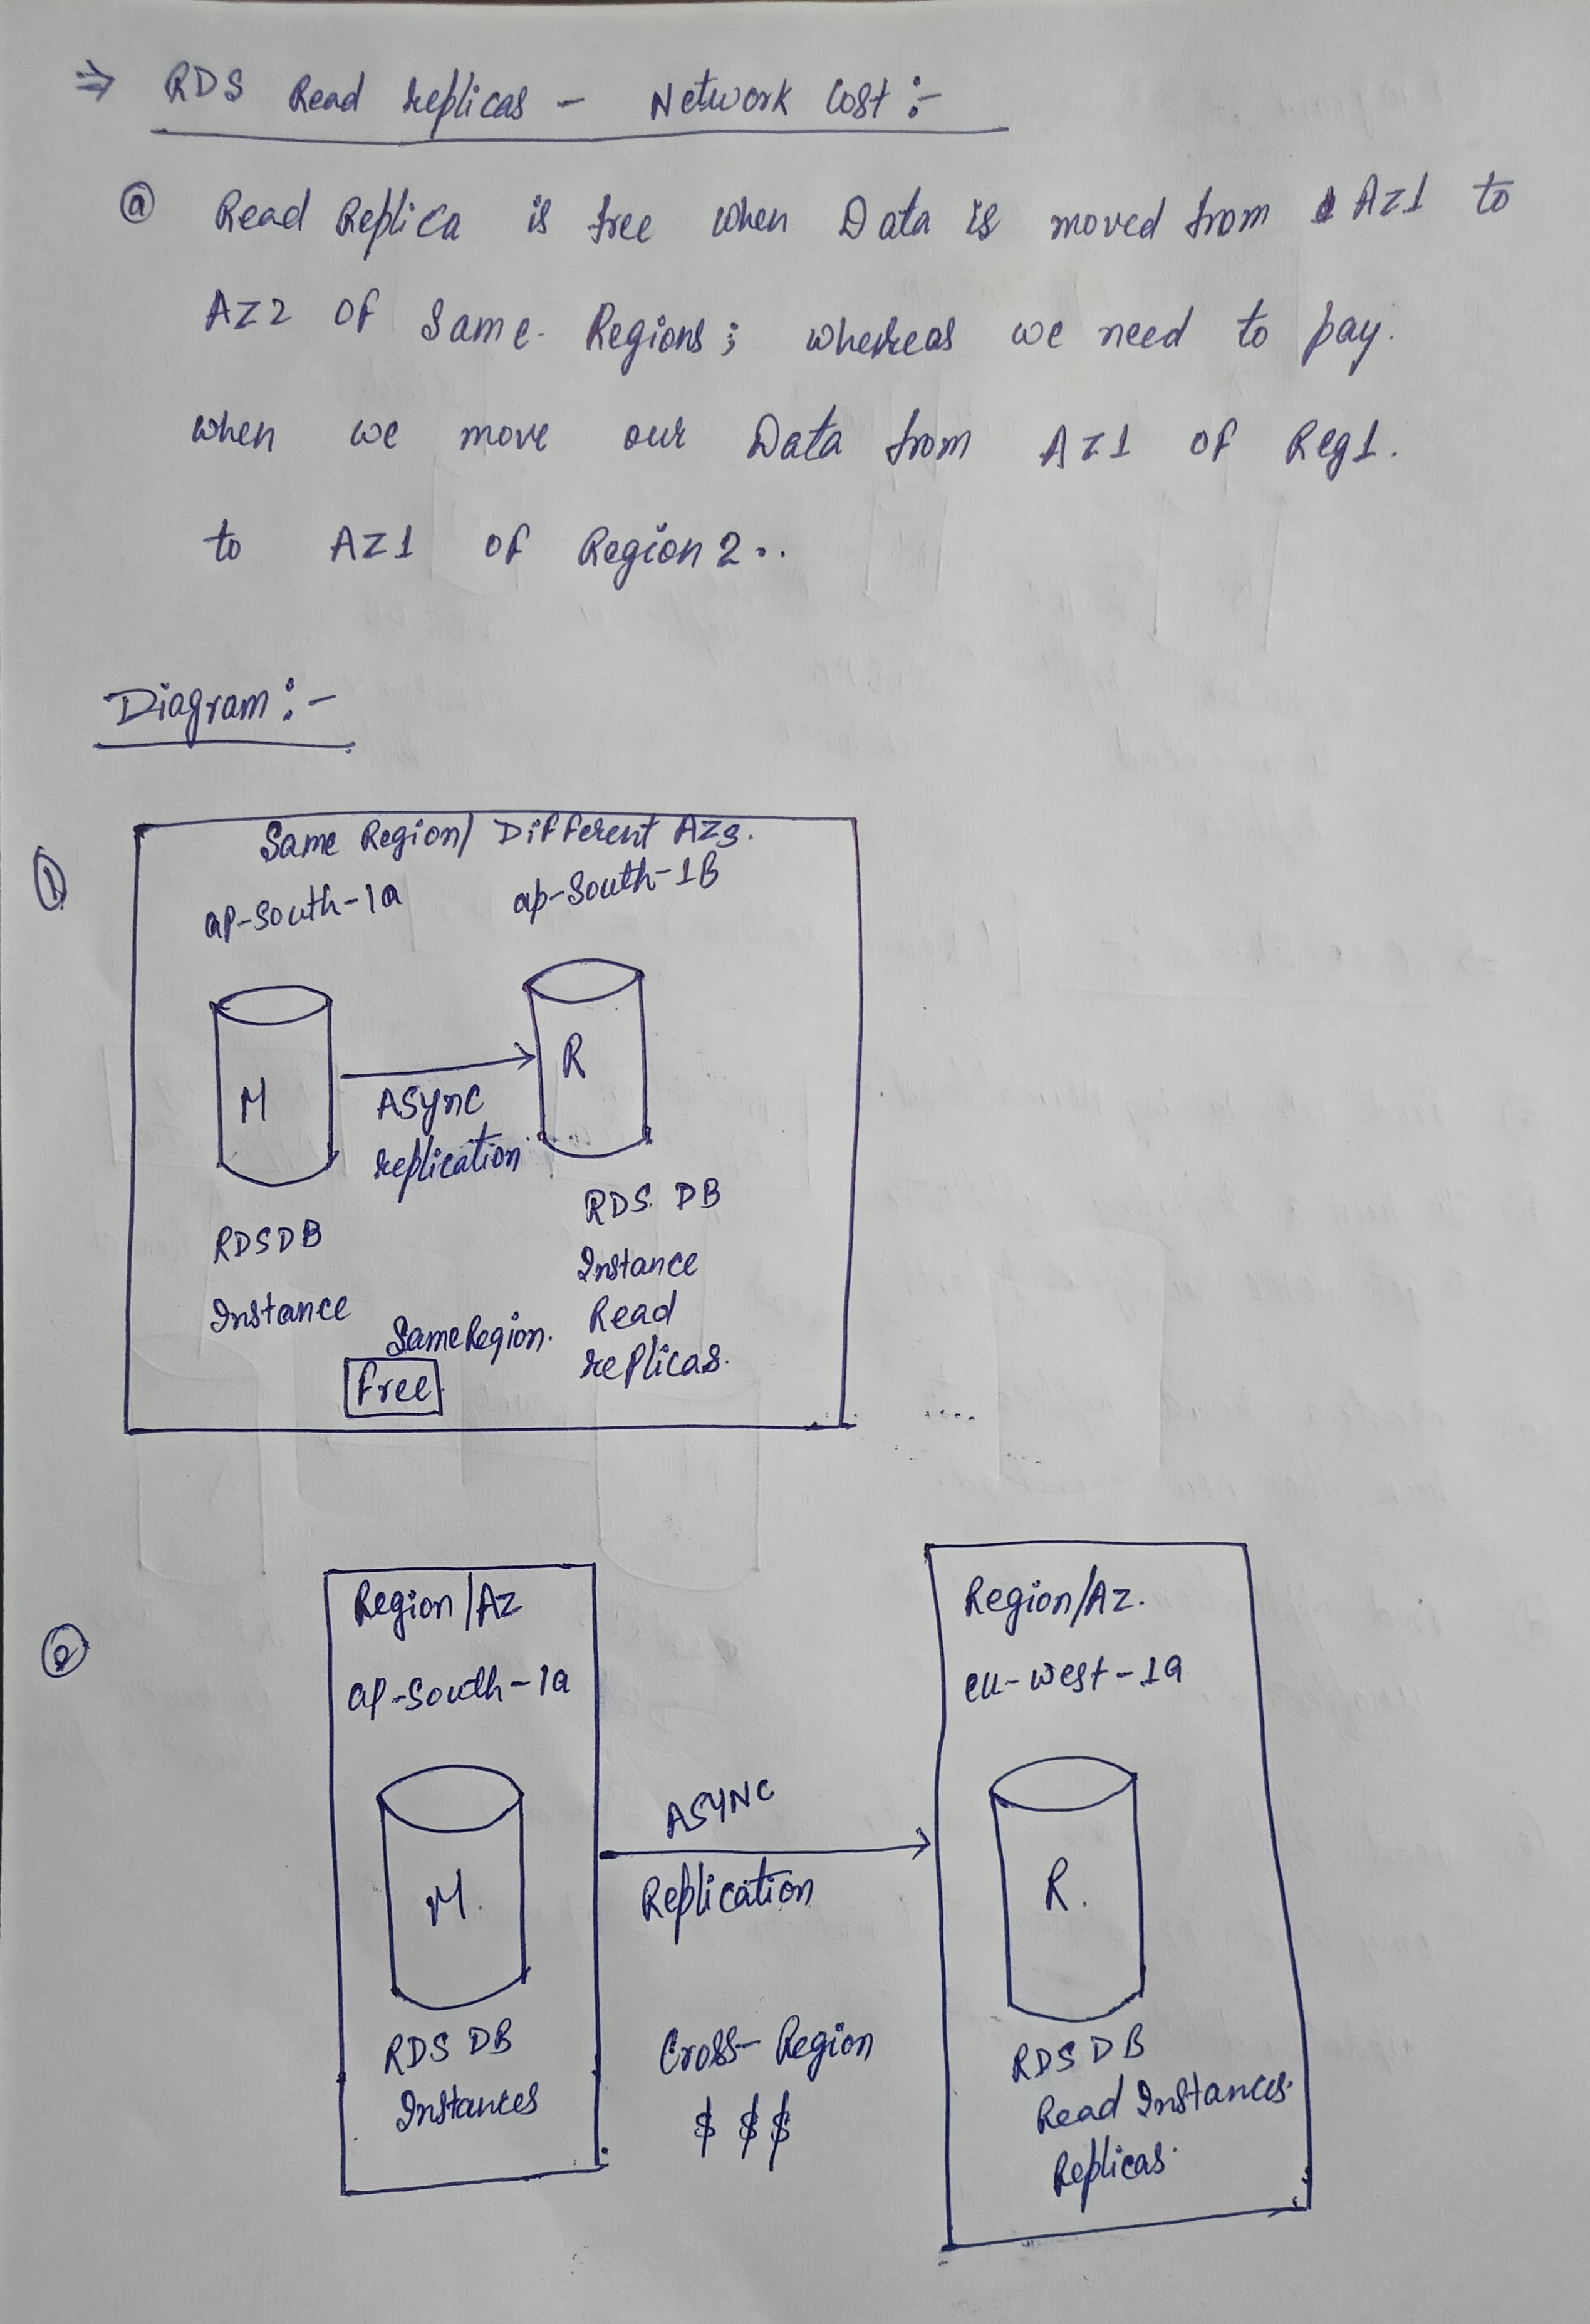 ⇒ RDS Read replicas - Network Cost :-
ⓐ Read Replica is free when Data is moved from AZ1 to
AZ2 of Same Regions; whereas we need to pay.
when we move our Data from AZ1 of Reg1.
to AZ1 of Region 2..
Diagram :-
①
Same Region/ Different AZs.
ap-south-1a ap-South-1B
M
R
ASync
replication
RDSDB
Instance
RDS. DB
Instance
Read
replicas.
Same Region.
free
②
Region/AZ
ap-South-1a
M.
RDS DB
Instances
ASYNC
Replication
Cross-Region
$ $$
Region/Az.
eu-west-1a
R.
RDS DB
Read Instances.
Replicas.